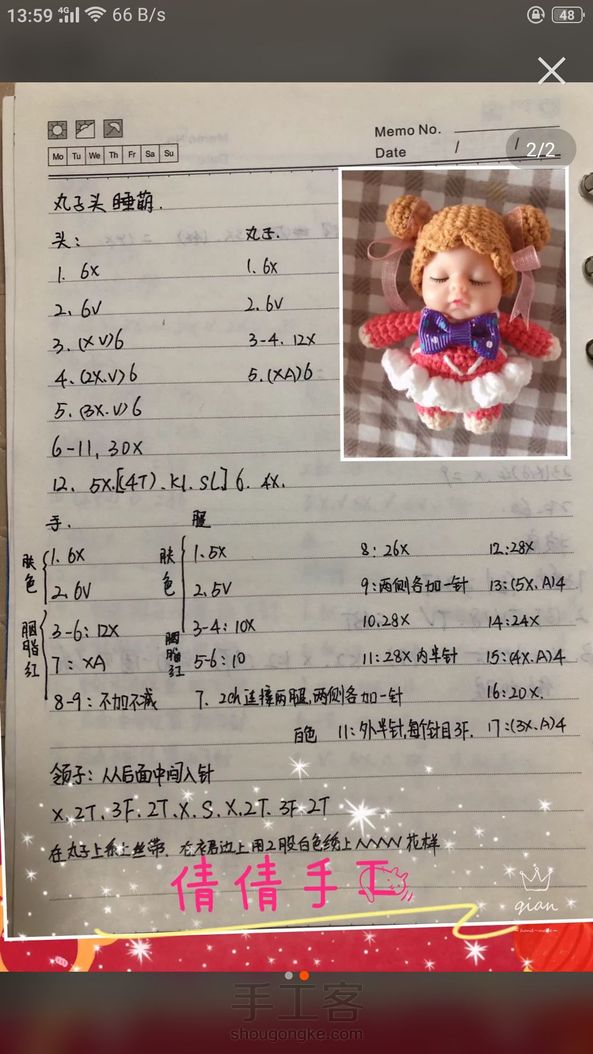 13:59 4G 66 B/s 48
Memo No.
Mo Tu We Th Fr Sa Su
Date / /
2/2
丸子头 睡萌.
头: 丸子.
1. 6X 1. 6X
2. 6V 2. 6V
3. (X V)6 3-4. 12X
4. (2X.V)6 5. (XA)6
5. (3X.V)6
6-11, 30X
12. 5X.[(4T).K1.SL]6.4X.
手. 腿
肤色 1. 6X
2. 6V
胭脂红 3-6: 12X
7: XA
8-9: 不加不减
肤色 1. 5X
2. 5V
胭脂红 3-4: 10X
5-6: 10
7. 2ch连接两腿,两侧各加一针
8: 26X
9: 两侧各加一针
10. 28X
11: 28X 内半针
白色 11: 外半针,每个针目3F.
12: 28X
13: (5X.A)4
14: 24X
15: (4X.A)4
16: 20X.
17: (3X.A)4
领子: 从后面中间入针
X.2T.3F.2T.X.S.X.2T.3F.2T
在丸子上系上丝带. 在裙边上用2股白色绕上/\/\/\/\/花样
倩倩手工
qian
手工客
shougongke.com